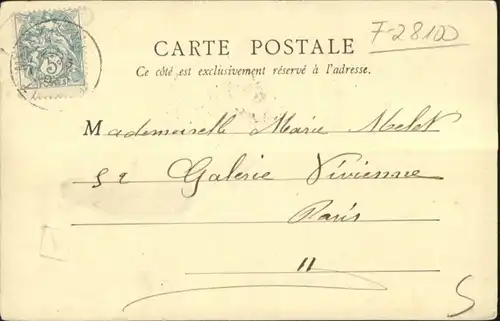 F-28100
CARTE POSTALE
Ce côté est exclusivement réservé à l'adresse.
Mademoiselle Marie Melet
52 Galerie Vivienne
Paris
11
5